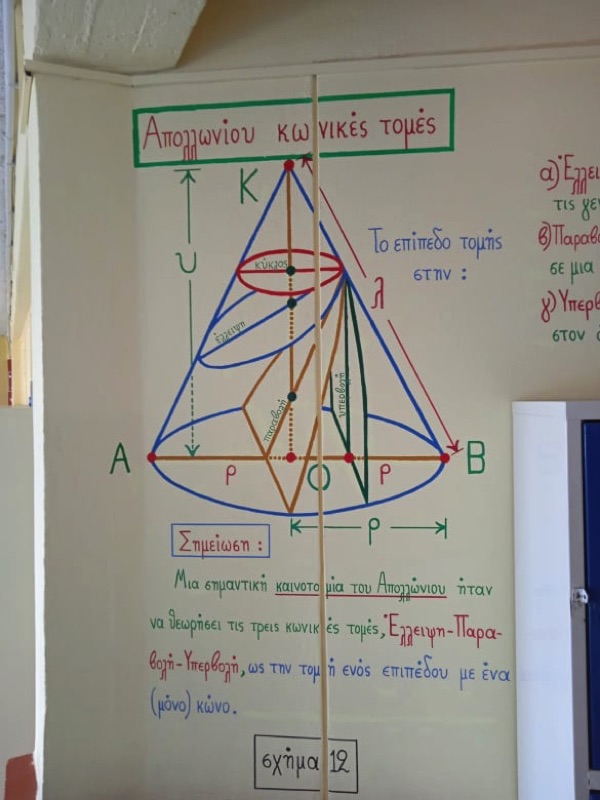 Απολλωνίου κωνικές τομές
Κ
υ
κύκλος
έλλειψη
παραβολή
υπερβολή
λ
Το επίπεδο τομής
στην :
α) Έλλει
τις γε
β) Παραβ
σε μια
γ) Υπερβ
στον
Α
ρ
Ο
ρ
Β
ρ
Σημείωση :
Μια σημαντική καινοτομία του Απολλώνιου ήταν
να θεωρήσει τις τρεις κωνικές τομές, Έλλειψη-Παρα-
βολή-Υπερβολή, ως την τομή ενός επιπέδου με ένα
(μόνο) κώνο.
σχήμα 12